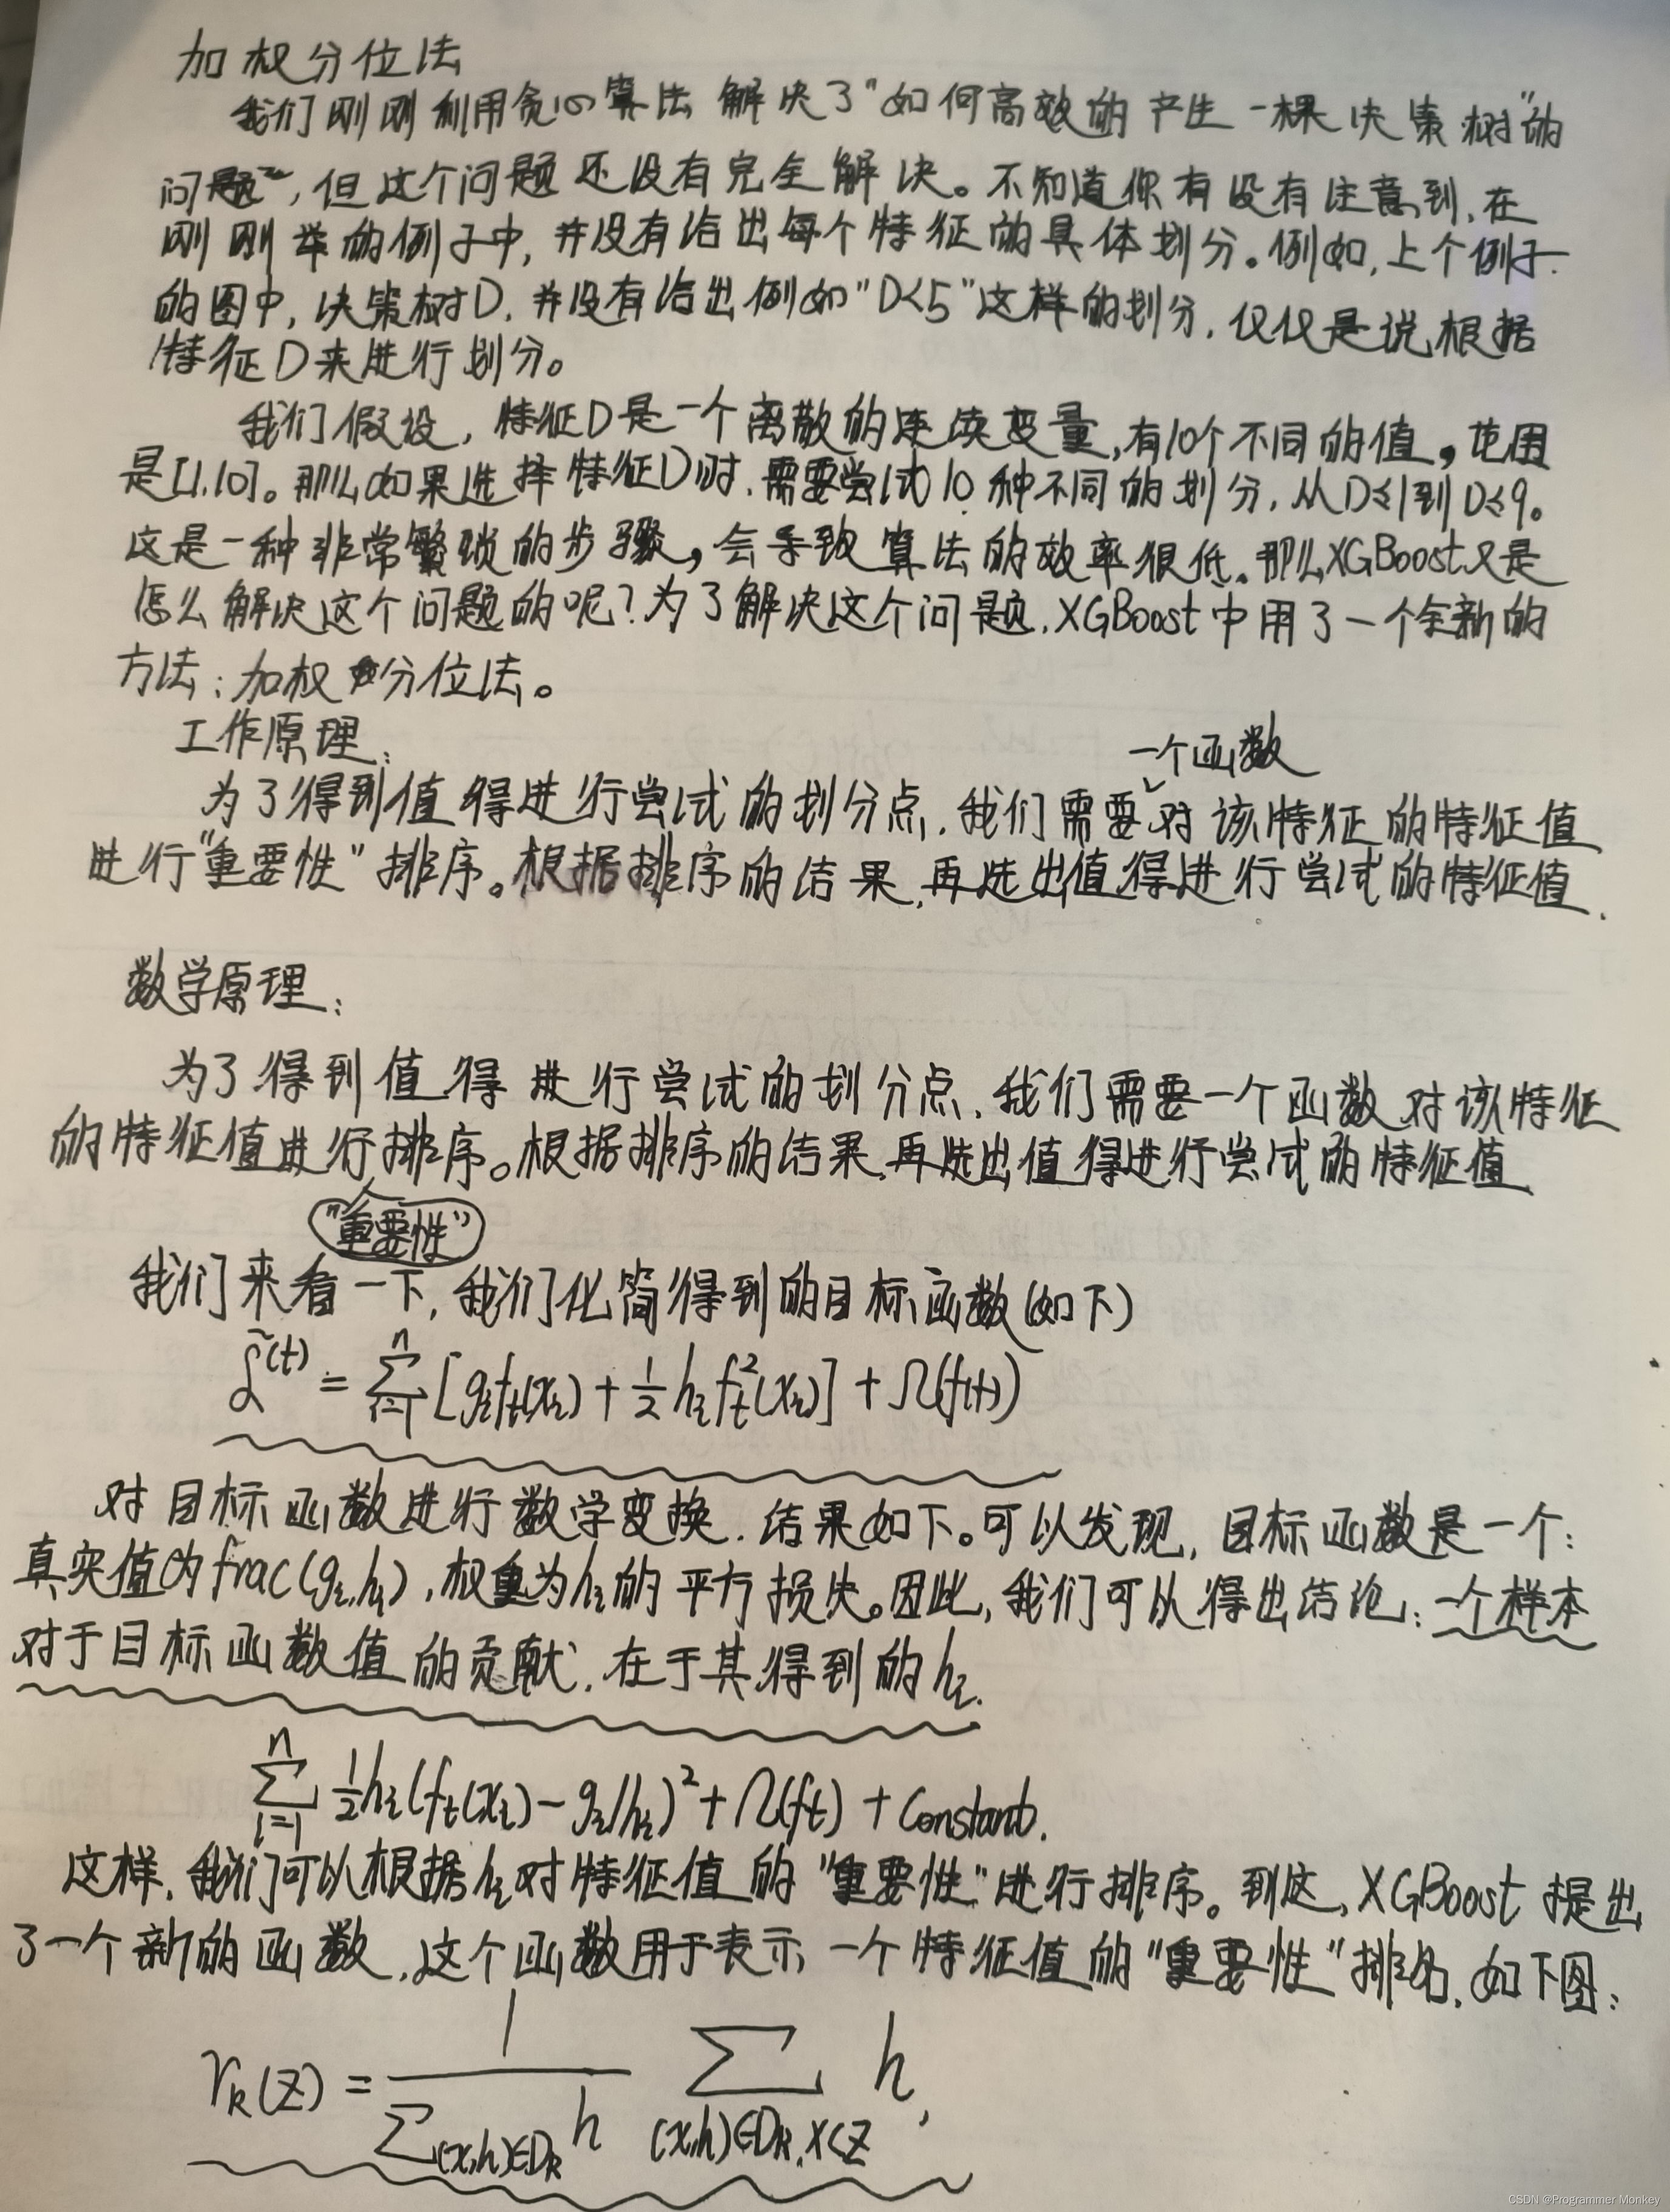 加权分位法
我们刚刚利用贪心算法解决了"如何高效的产生一棵决策树"的
问题,但这个问题还没有完全解决。不知道你有没有注意到,在
刚刚举的例子中,并没有给出每个特征的具体划分。例如,上个例子
的图中,决策树D,并没有给出例如"D<5"这样的划分,仅仅是说根据
特征D来进行划分。
我们假设,特征D是一个离散的连续变量,有10个不同的值,范围
是[1,10]。那么如果选择特征D时,需要尝试10种不同的划分,从D≤1到D≤9。
这是一种非常繁琐的步骤,会导致算法的效率很低。那么XGBoost又是
怎么解决这个问题的呢?为了解决这个问题,XGBoost中用了一个全新的
方法:加权分位法。
工作原理:
一个函数
为了得到值得进行尝试的划分点,我们需要对该特征的特征值
进行"重要性"排序。根据排序的结果,再选出值得进行尝试的特征值.
数学原理:
为了得到值得进行尝试的划分点,我们需要一个函数对该特征
的特征值进行排序。根据排序的结果,再选出值得进行尝试的特征值
"重要性"
我们来看一下,我们化简得到的目标函数(如下)
L̃^(t) = Σ_{i=1}^n [g_i f_t(x_i) + 1/2 h_i f_t^2(x_i)] + Ω(f(t))
对目标函数进行数学变换,结果如下。可以发现,目标函数是一个:
真实值为frac(g_i,h_i),权重为h_i的平方损失。因此,我们可以得出结论:一个样本
对于目标函数值的贡献,在于其得到的h_i.
Σ_{i=1}^n 1/2 h_i (f_t(x_i) - g_i/h_i)^2 + Ω(ft) + Constant.
这样,我们可以根据h_i对特征值的"重要性"进行排序。到这,XGBoost提出
了一个新的函数,这个函数用于表示一个特征值的"重要性"排名,如下图:
r_k(z) = 1/Σ_{(x,h)∈D_k} h Σ_{(x,h)∈D_k, x<z} h,
CSDN @Programmer Monkey